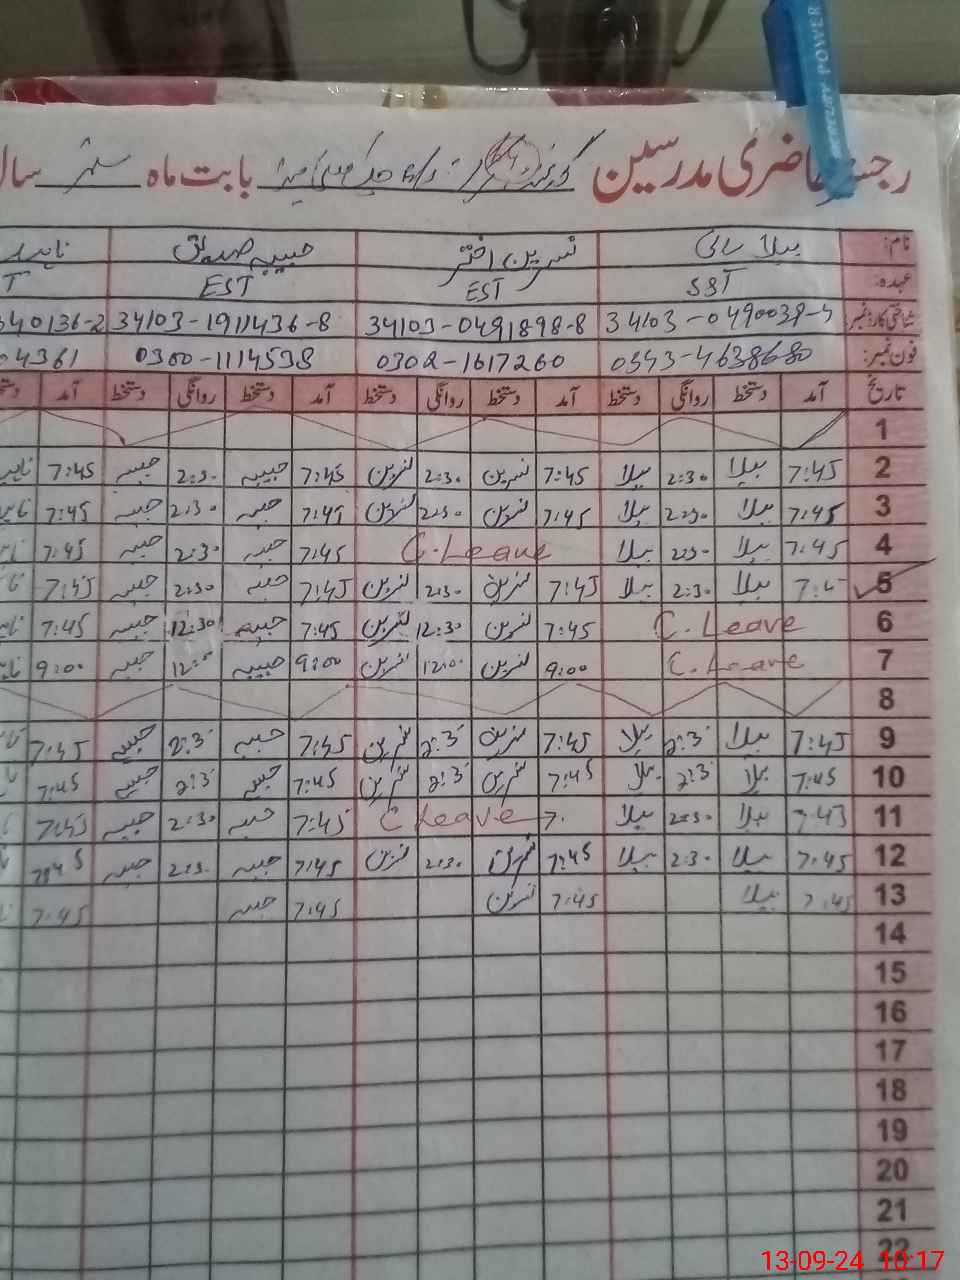 رجسٹر حاضری مدرسین بابت ماہ ستمبر سال
نام: بیلا نسرین اختر حبیبہ صدیق
عہدہ: SST EST EST T
شناختی کارڈ نمبر: 34103-0491898-8 34103-1911436-8 340136-2
فون نمبر: 0343-4638680 0302-1617260 0300-1114538 04361
تاریخ آمد دستخط روانگی دستخط آمد دستخط روانگی دستخط آمد دستخط روانگی دستخط آمد
1
2 7:45 بیلا 2:30 بیلا 7:45 نسرین 2:30 نسرین 7:45 حبیبہ 2:30 حبیبہ 7:45
3 7:45 بیلا 2:30 بیلا 7:45 نسرین 2:30 نسرین 7:45 حبیبہ 2:30 حبیبہ 7:45
4 7:45 بیلا 2:30 بیلا C.Leave 7:45 حبیبہ 2:30 حبیبہ 7:45
5 7:4 بیلا 2:30 بیلا 7:45 نسرین 2:30 نسرین 7:45 حبیبہ 2:30 حبیبہ 7:45
6 C.Leave 7:45 نسرین 12:30 نسرین 7:45 حبیبہ 12:30 حبیبہ 7:45
7 C.Leave 9:00 نسرین 12:00 نسرین 9:00 حبیبہ 12:0 حبیبہ 9:00
8
9 7:45 بیلا 2:3 بیلا 7:45 نسرین 2:3 نسرین 7:45 حبیبہ 2:3 حبیبہ 7:45
10 7:45 بیلا 2:3 بیلا 7:45 نسرین 2:3 نسرین 7:45 حبیبہ 2:3 حبیبہ 7:45
11 7:45 بیلا 2:30 بیلا C Leave 7:45 حبیبہ 2:30 حبیبہ 7:45
12 7:45 بیلا 2:30 بیلا 7:45 نسرین 2:30 نسرین 7:45 حبیبہ 2:3 حبیبہ 7:45
13 7:45 بیلا 7:45 نسرین 7:45 حبیبہ 7:45
14
15
16
17
18
19
20
21
22
MERCURY POWER
13-09-24 10:17